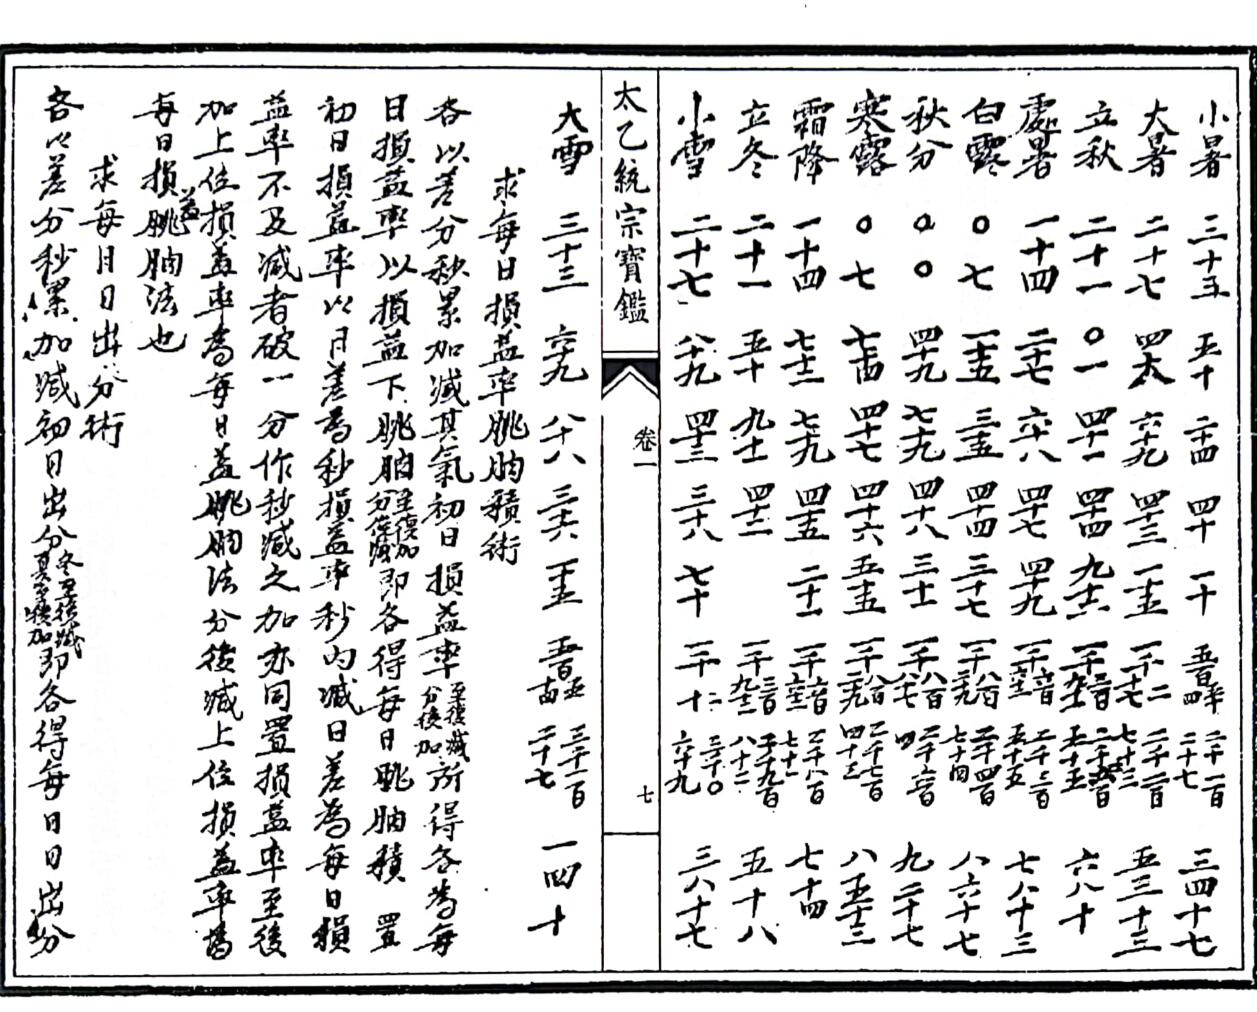 小暑 三十五 五十 二十四 四十 一十 五百五十四 二千一百二十七 三四十七
大暑 二十七 四十六 六十九 四十三 一十五 一千一十七 二千二百七十三 五三十三
立秋 二十一 〇一 四十一 四十四 九十六 二千五百五十五 六八十
處暑 一十四 二十七 六十八 四十七 四十九 二千三百五十五 七八十三
白露 〇七 一十五 三十五 四十四 三十七 二千四百七十四 八六十七
秋分 〇〇 四十九 七十九 四十八 三十一 二千六百四 九二十七
寒露 〇七 七十四 四十七 四十六 五十五 二千七百四十三 八五十三
霜降 一十四 七十三 七十九 四十五 二十一 二千八百七十一 七十四
立冬 二十一 五十 九十一 四十二 二千九百八十二 五十八
小雪 二十七 八十九 四十三 三十八 七十 三千〇六十九 三八十七
太乙統宗寶鑑 卷一 七
大雪 三十三 六十九 八十八 三十六 一十五 五百五十四 三千一百二十七 一四十
求每日損益率朓朒積術
各以差分秒累加減其氣初日損益率至後減分後加所得各為每
日損益率以損益下朓朒至後加分後減即各得每日朓朒積 置
初日損益率以日差為秒損益率秒內減日差為每日損
益率不及減者破一分作秒減之加亦同置損益率至後
加上位損益率為每日益朓朒法分後減上位損益率為
每日損益朓朒法也
求每月日出分術
各以差分秒累加減初日出分冬至後減夏至後加即各得每日日出分